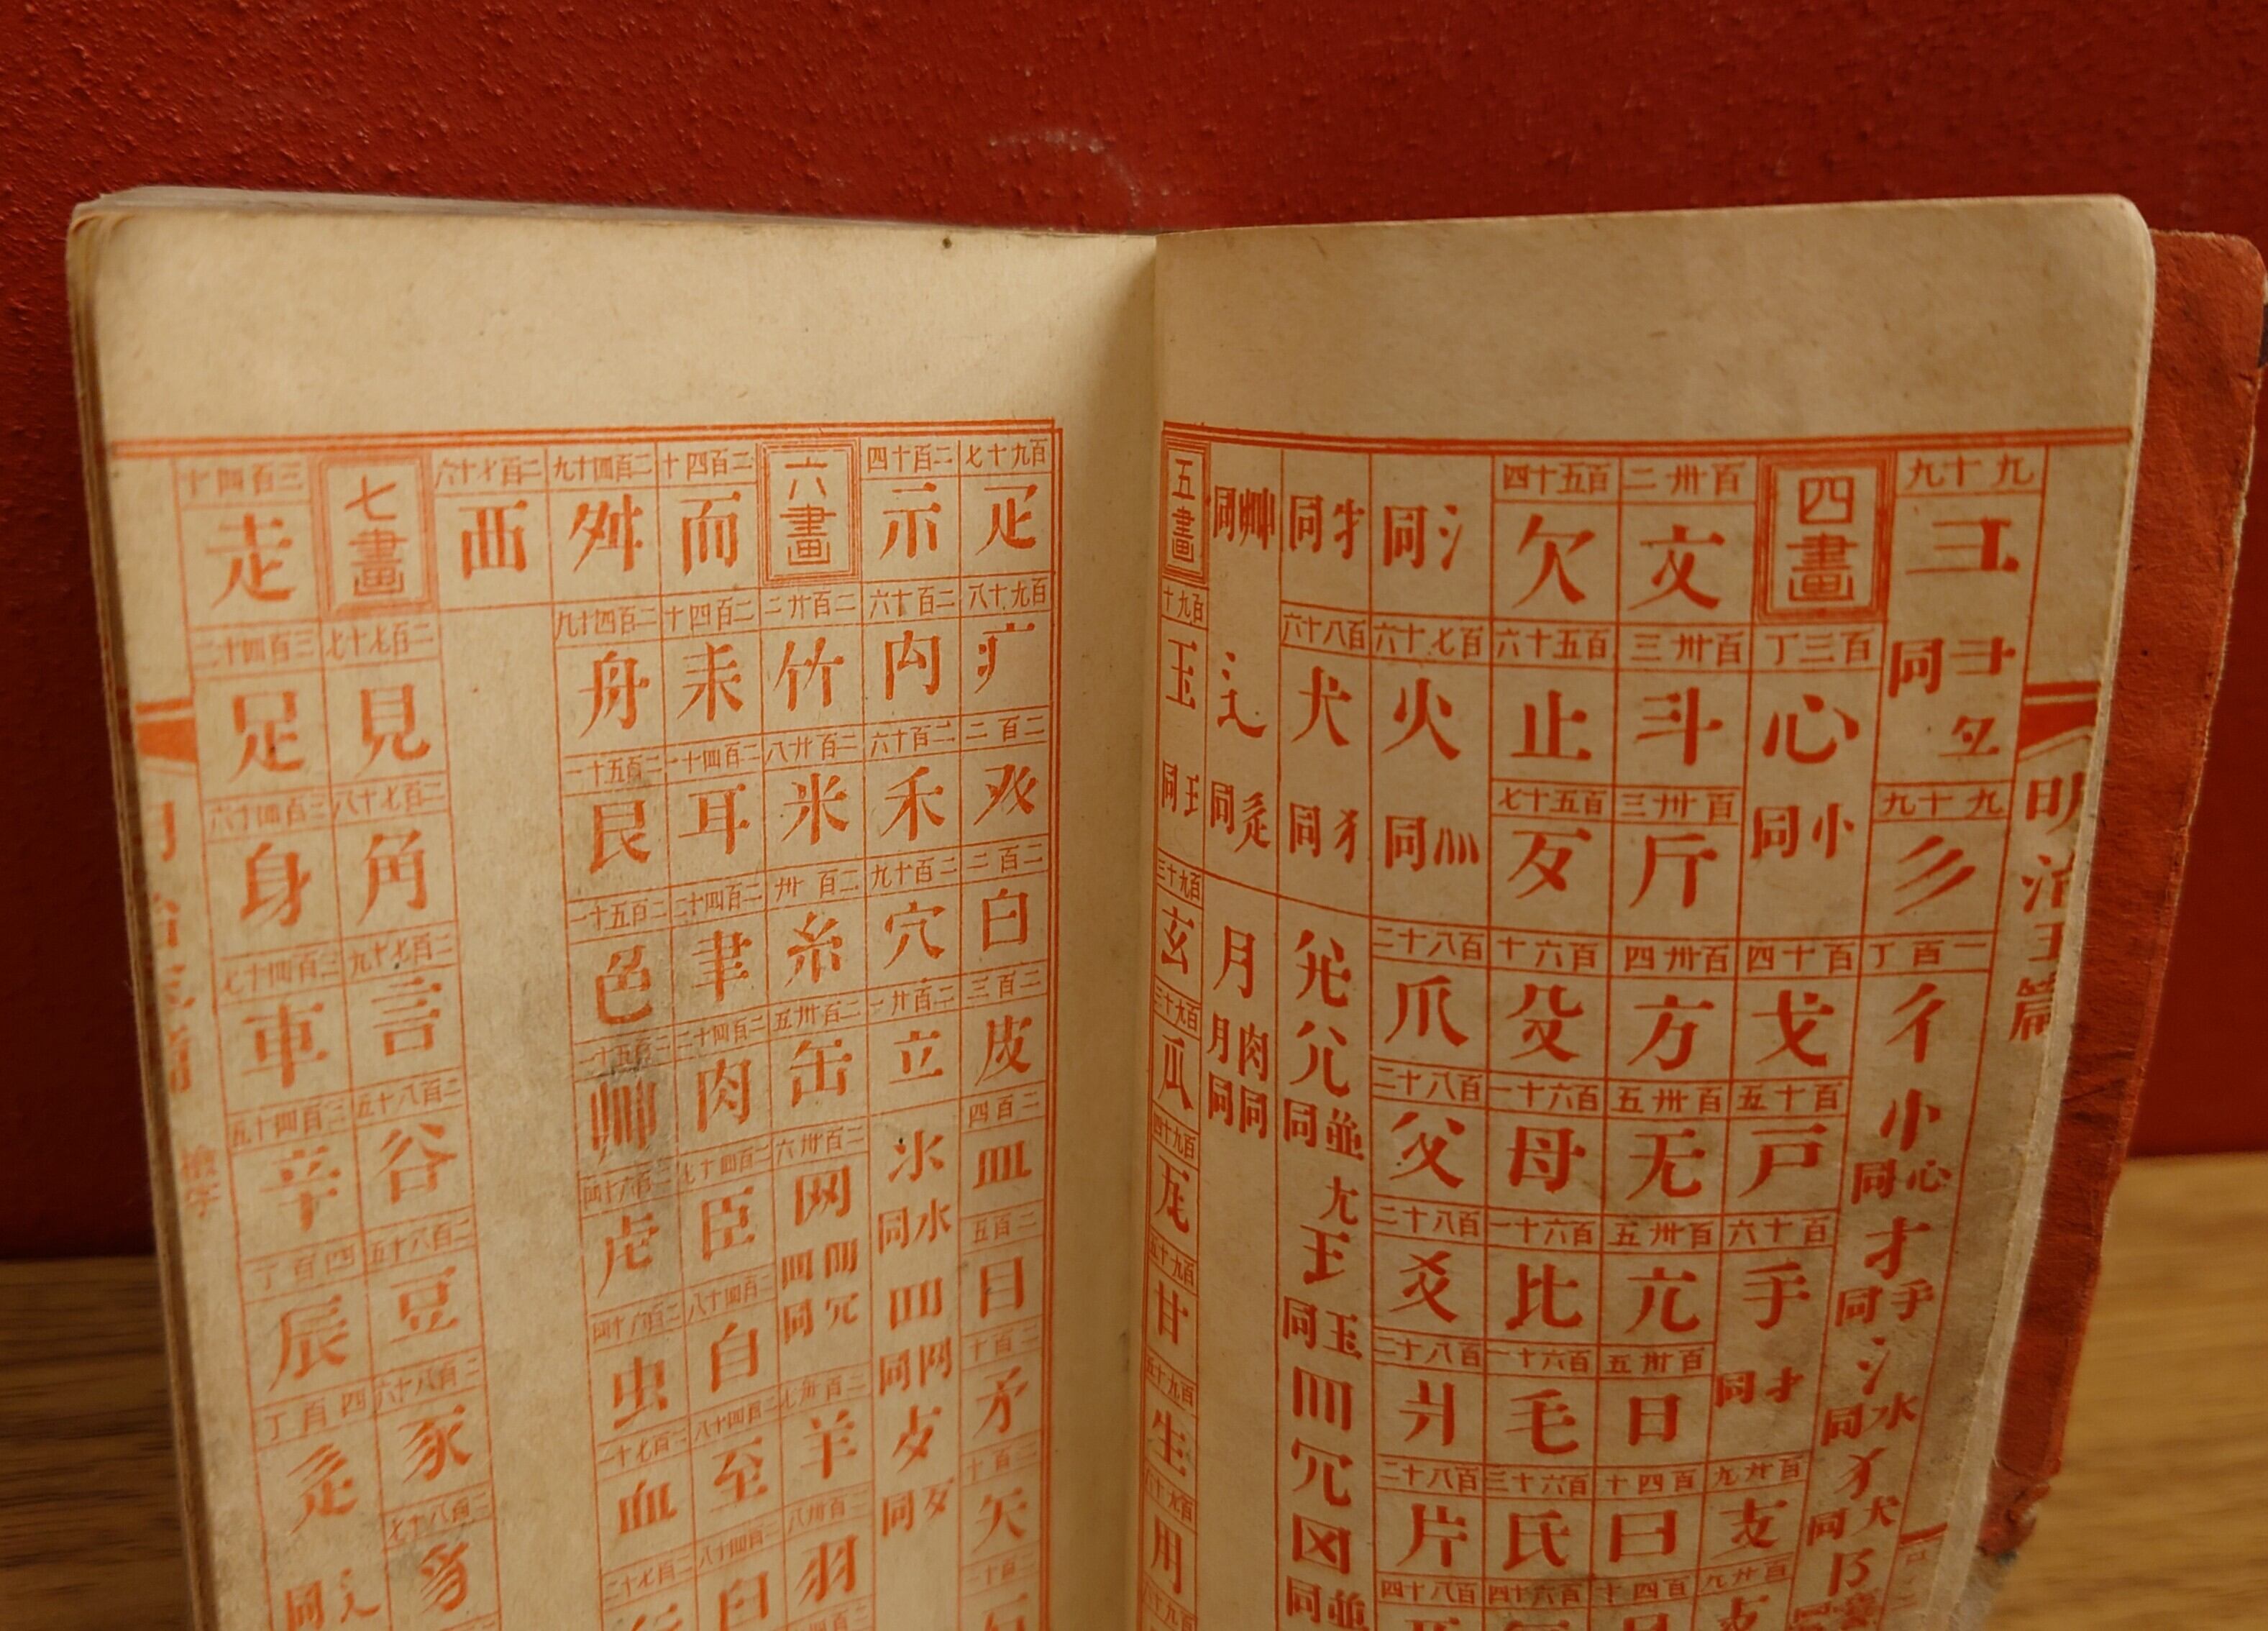 明治玉篇
九十九 彐 同 九十九 彡 一百丁 彳 小心同 才手同 氵水同 犭犬同
四畫 百三丁 心 小同 百十四 戈 百十五 戸 百十六 手 扌同 百廿九 支 百廿九
百卅二 文 百卅三 斗 百卅三 斤 百卅四 方 百卅五 无 百卅五 亢 百卅五 日 百四十 曰 百四十
百五十四 欠 百五十六 止 百五十七 歹 百六十 殳 百六十一 母 百六十一 比 百六十一 毛 百六十三 氏 百六十四
氵同 百七十六 火 灬同 百八十二 爪 百八十二 父 百八十二 爻 百八十二 爿 百八十二 片 百八十四
牜同 百八十六 犬 犭同 並同 尢 王 玉同 罒 冗 並同
艸同 辶 辵同 月 肉同 月同
五畫 百九十 玉 王同 百九十三 玄 百九十三 瓜 百九十四 瓦 百九十五 甘 百九十五 生 百九十六 用 百九十八
百九十七 疋 百九十八 疒 二百二 癶 二百二 白 二百三 皮 二百四 皿 二百五 目 二百十 矛 二百十 矢 二百十一 石
二百十四 示 二百十六 禸 二百十六 禾 二百十九 穴 二百廿一 立 氺 水同 罒 网同 歺 歹同
六畫 二百廿二 竹 二百廿八 米 二百卅 糸 二百卅五 缶 二百卅六 网 同 二百卅七 羊 二百卅八 羽
二百四十 而 二百四十 耒 二百四十一 耳 二百四十二 聿 二百四十二 肉 二百四十七 臣 二百四十八 自 二百四十八 至 二百四十八 臼
二百四十九 舛 二百四十九 舟 二百五十一 艮 二百五十一 色 二百五十一 艸 二百六十四 虍 二百六十四 虫 二百七十一 血 二百七十二 行
二百七十六 襾
七畫 二百七十七 見 二百七十八 角 二百七十九 言 二百八十五 谷 二百八十五 豆 二百八十六 豕 二百八十七 豸
三百四十 走 三百四十二 足 三百四十六 身 三百四十七 車 三百四十五 辛 四百丁 辰 四百丁 辵 辶同
明治玉篇 檢字